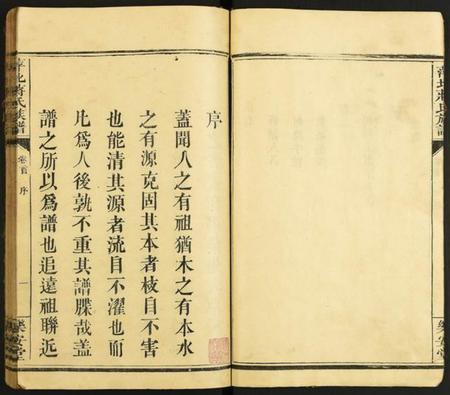 序
蓋聞人之有祖猶木之有本水
之有源克固其本者枝自不害
也能清其源者流自不濯也而
凡爲人後孰不重其譜牒哉蓋
譜之所以爲譜也追遠祖聯近
蔣氏族譜
卷首
序
一
樂安堂
蔣氏族譜
樂安堂